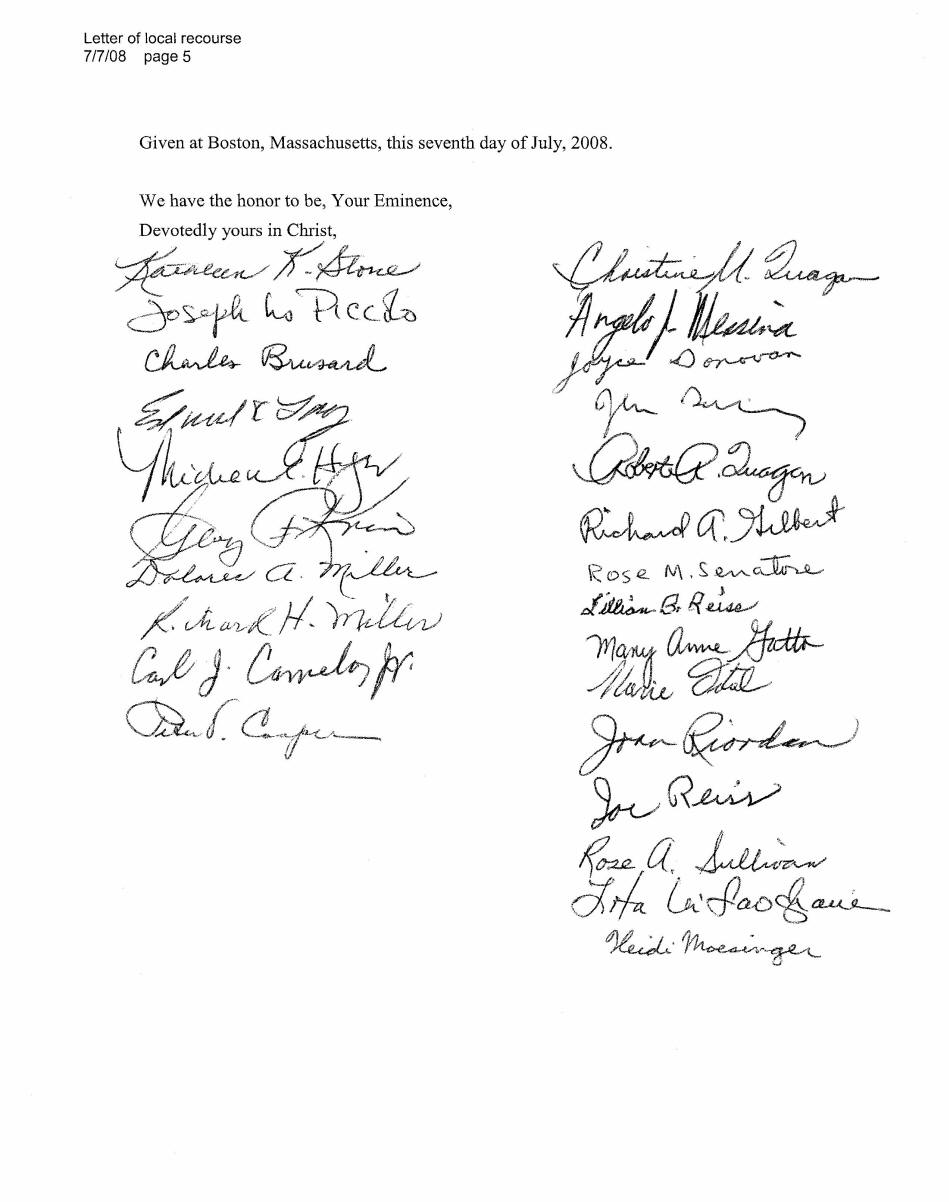 Letter of local recourse
7/7/08 page 5
Given at Boston, Massachusetts, this seventh day of July, 2008.
We have the honor to be, Your Eminence,
Devotedly yours in Christ,
Kathleen K. Stone
Joseph Lo Piccolo
Charles Brusard
Dolores A. Miller
Richard H. Miller
Carl J.
Peter
Christine M. Quagan
Angelo J. Messina
Joyce Donovan
Robert A. Quagan
Richard A. Gilbert
Rose M. Senatore
Lillian B. Reise
Mary Anne Gatto
Marie
Joan Riordan
Joe Reiss
Rose A. Sullivan
Heidi Moesinger